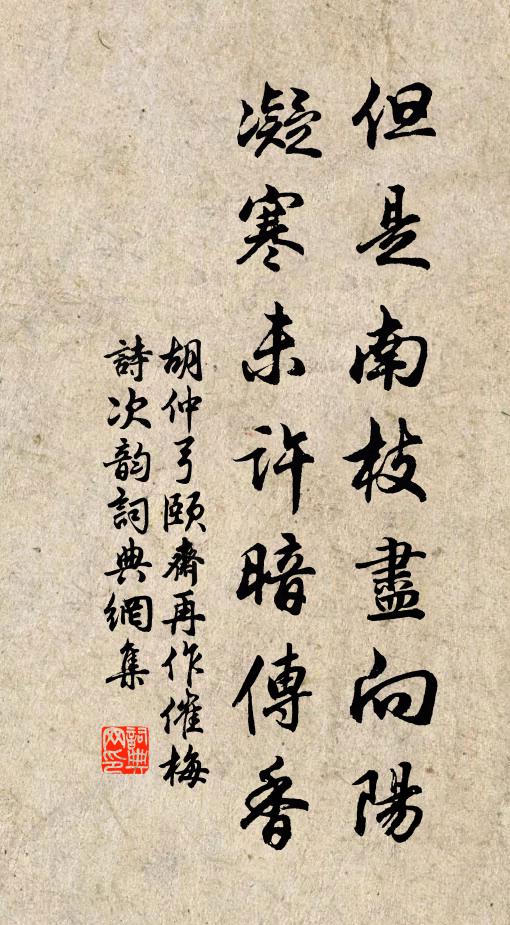 但是南枝盡向陽
凝寒未許暗傳香
胡仲弓頤齋再作催梅
詩次韵詞典網集
詞典
网印